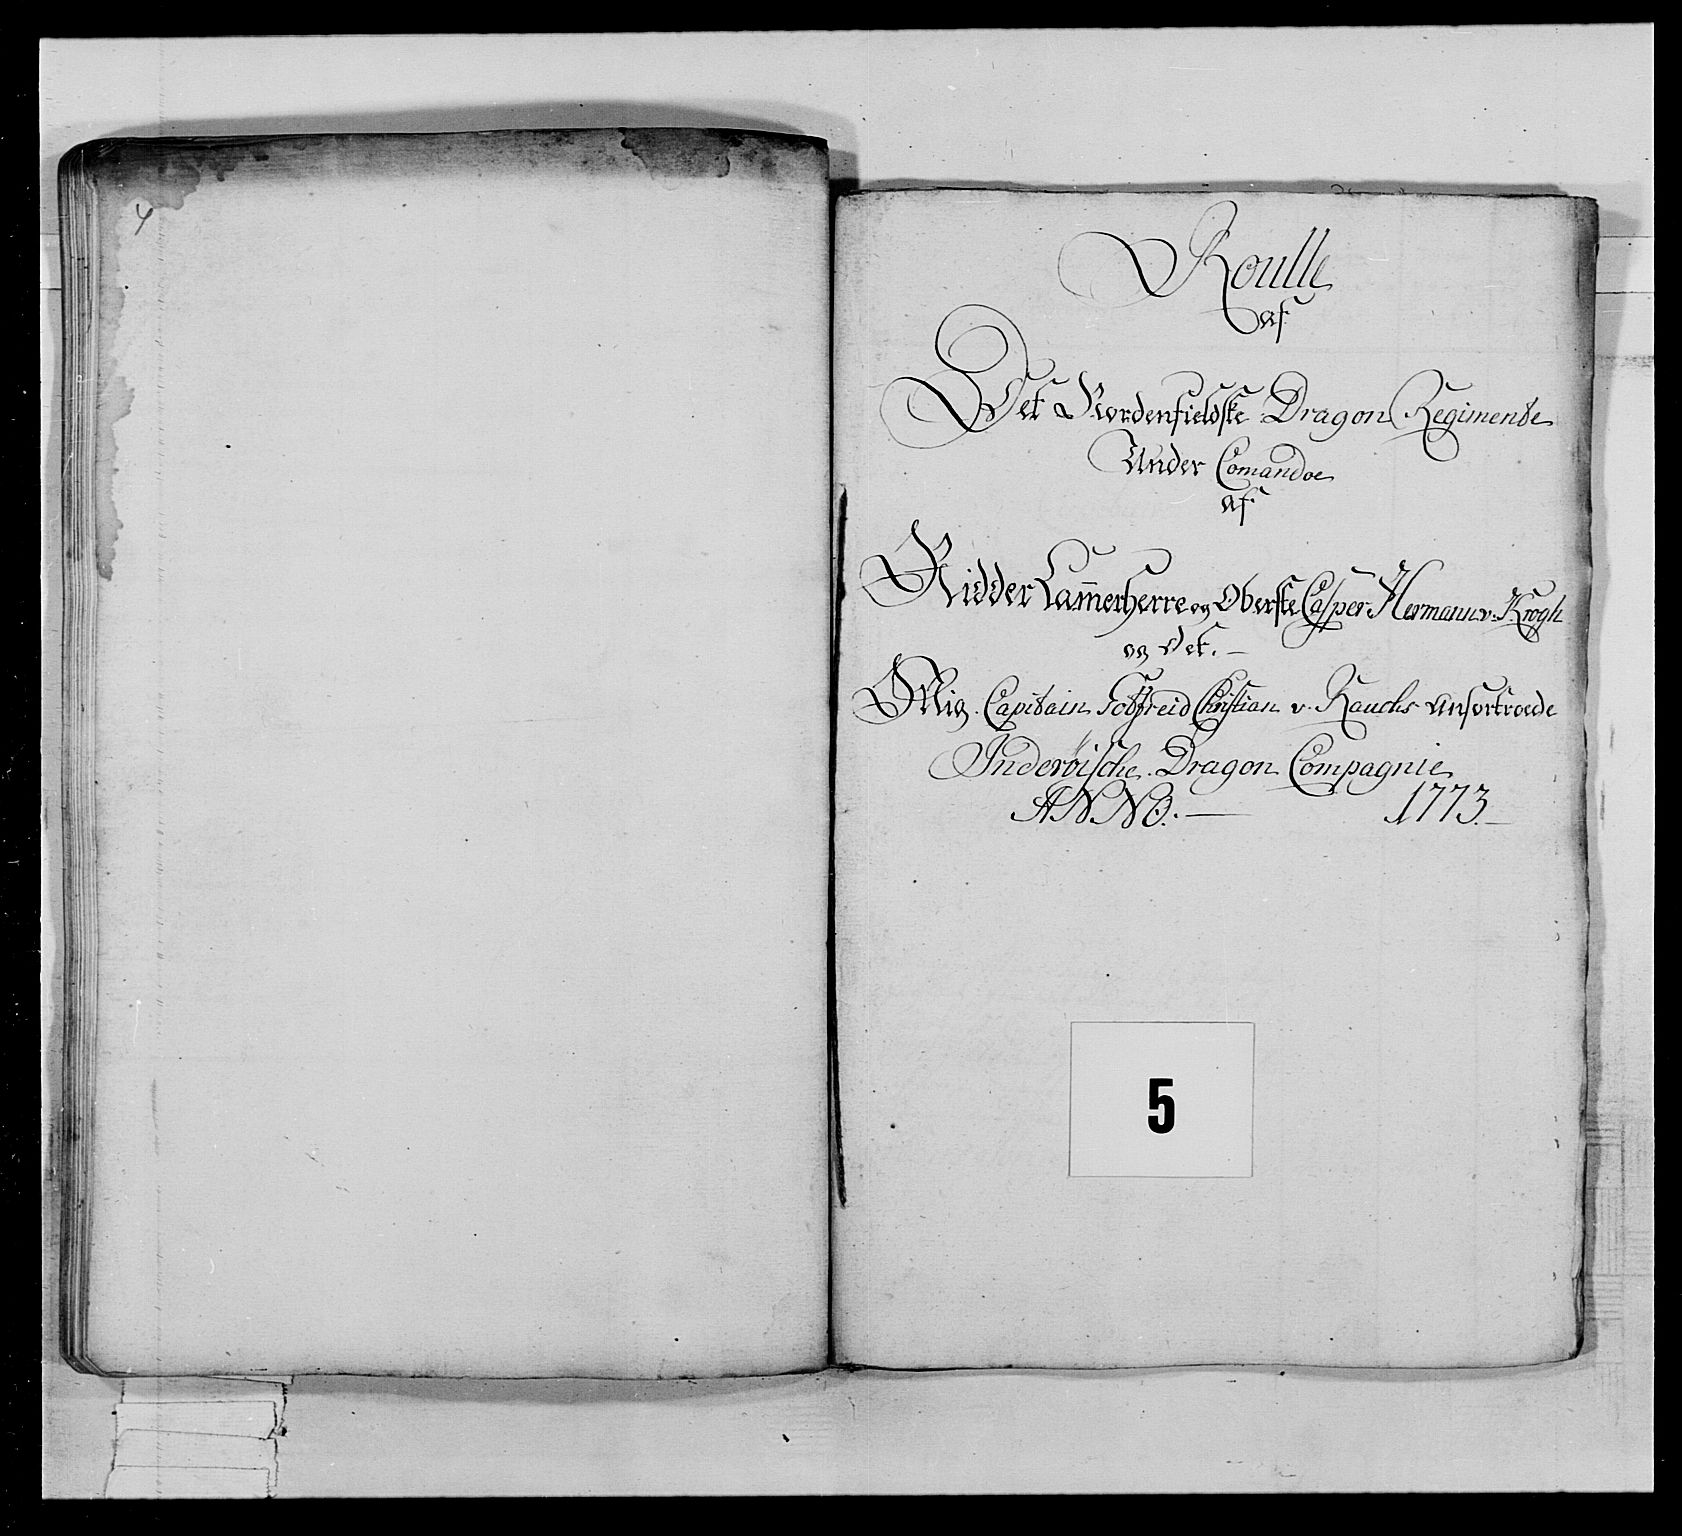 4
Roulle
af
Det Nordenfieldske Dragon Regimente
Under Comandoe
af
Ridder Kam̄erherre og Oberste Casper Hermann v. Krogh
og det.
Mig Capitain Gotfreid Christian v. Rauchs Anfortroede
Inderöische Dragon Compagnie
ANNO. 1773.
5